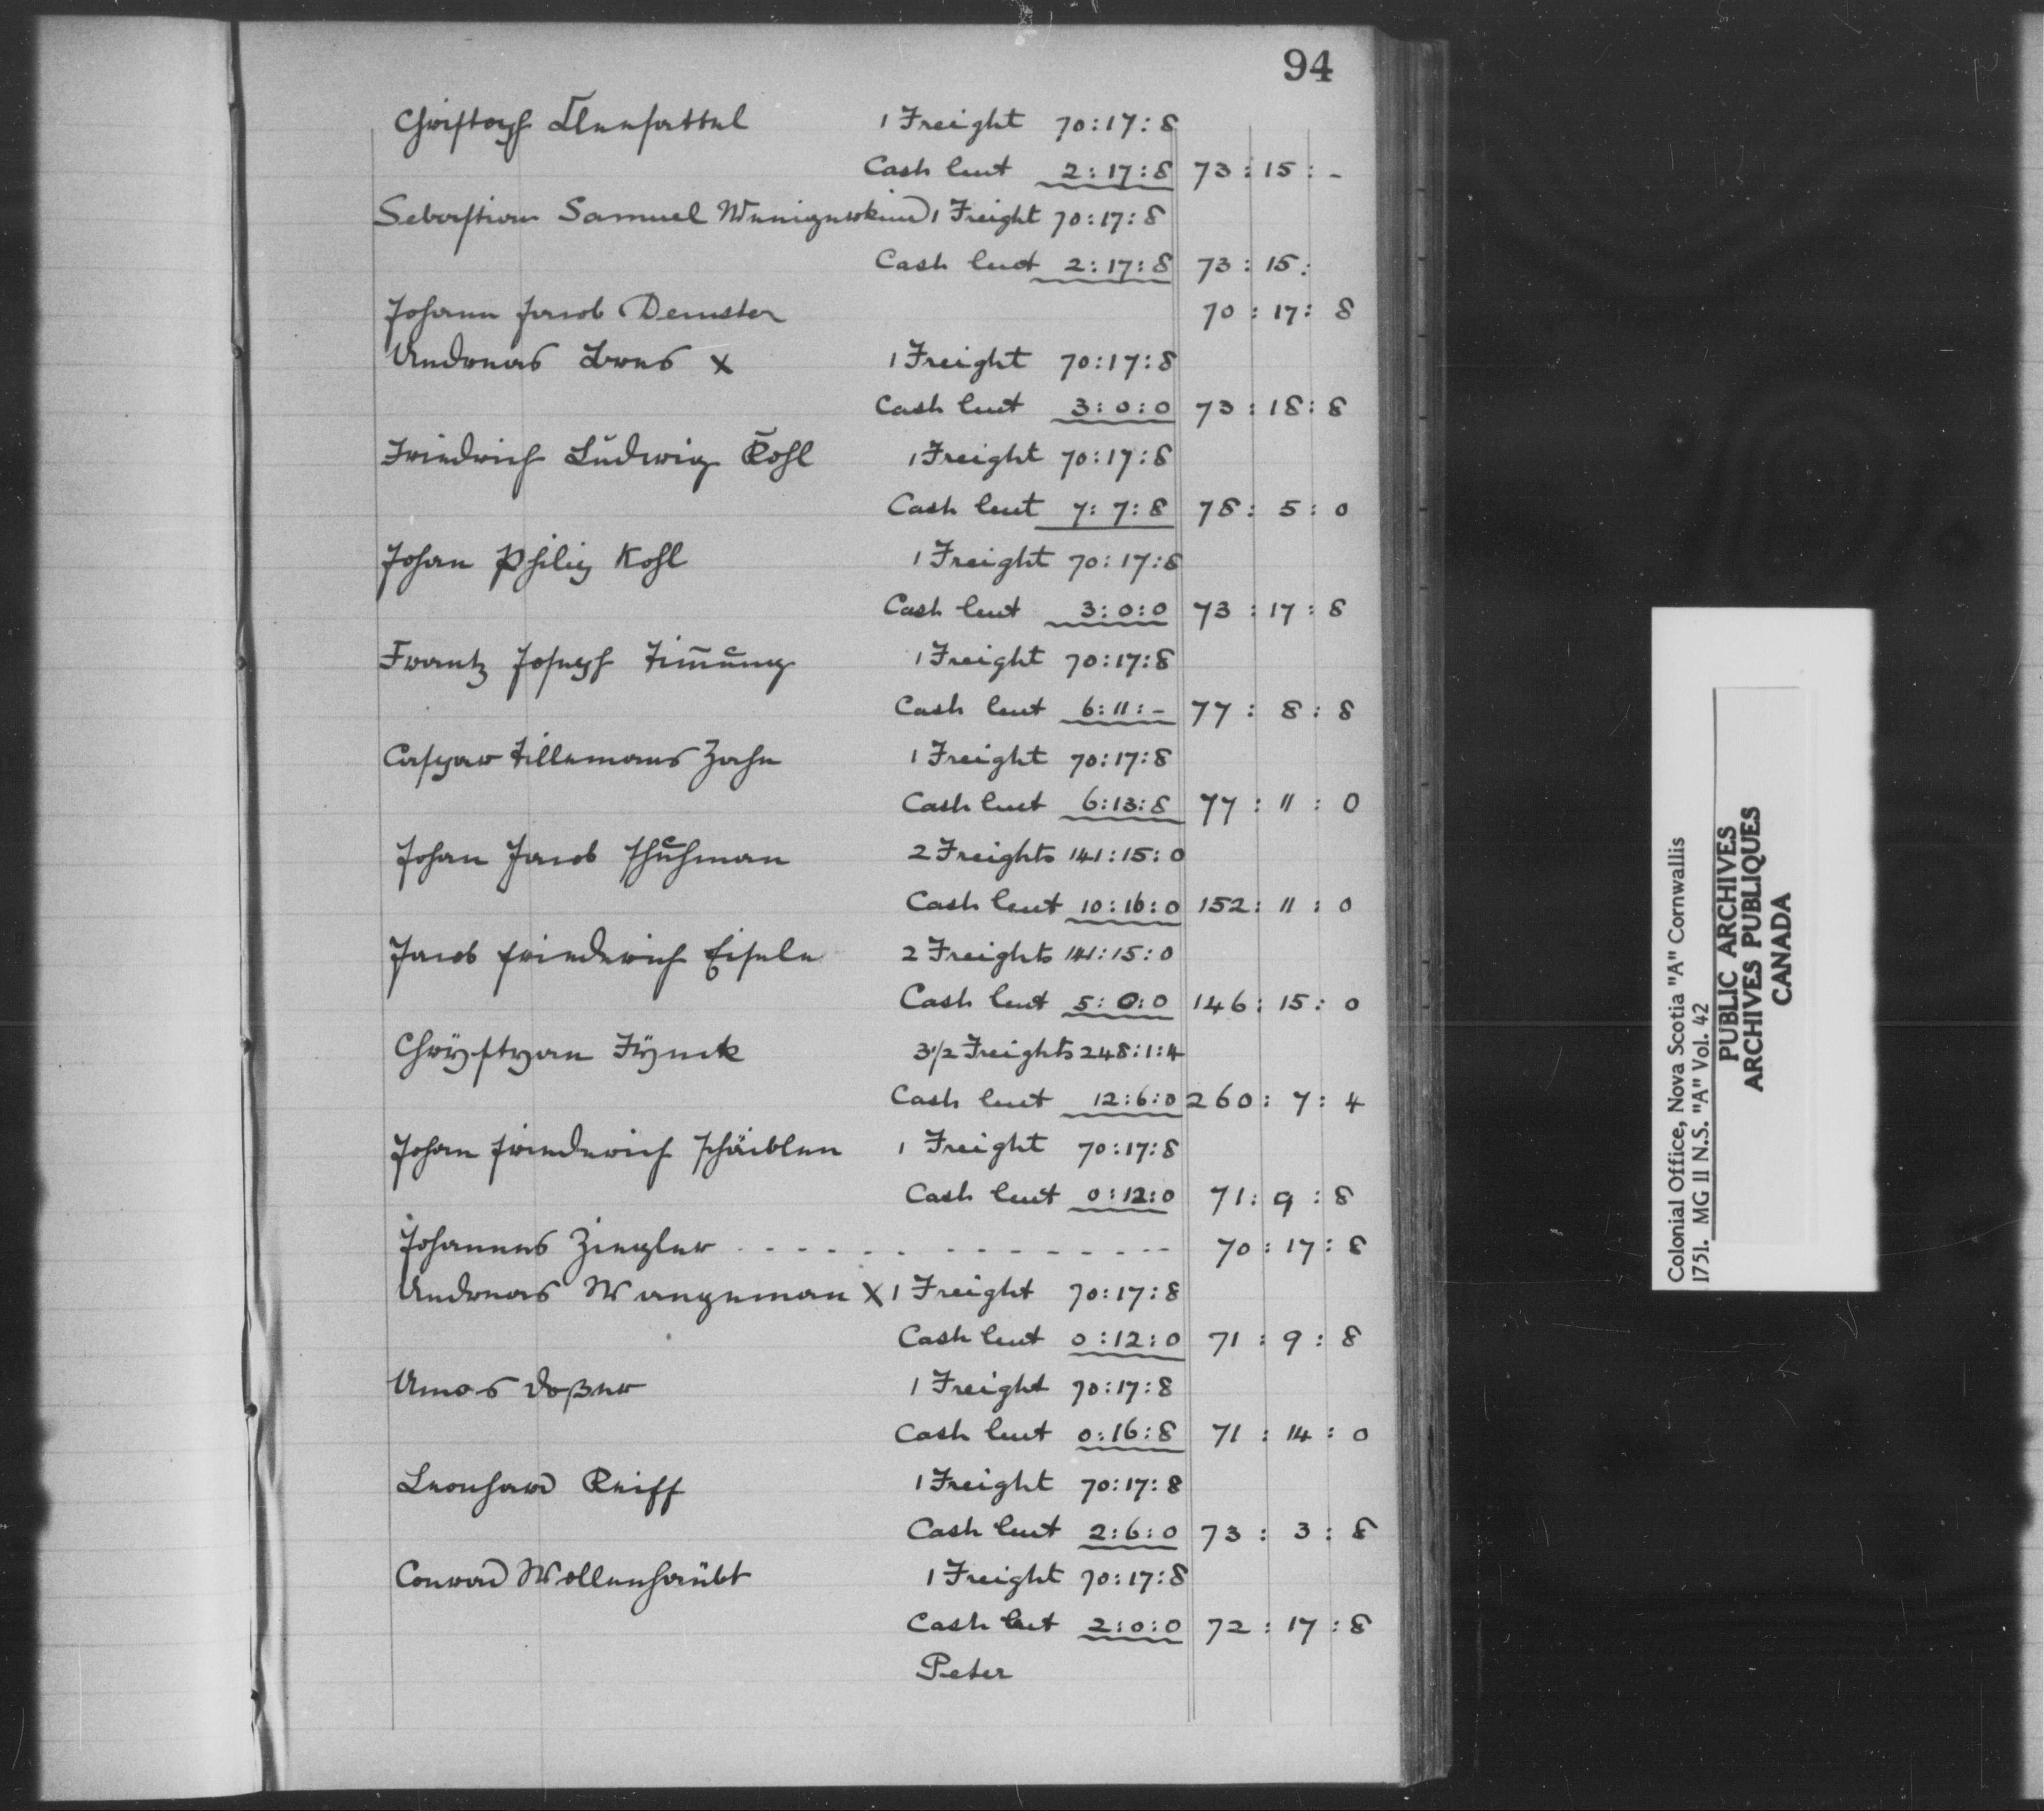 94
Christoph 1 Freight 70:17:8
Cash lent 2:17:8 73:15:-
Sebastian Samuel 1 Freight 70:17:8
Cash lent 2:17:8 73:15:
Johann Jacob Demster 70:17:8
Andreas x 1 Freight 70:17:8
Cash lent 3:0:0 73:18:8
Friedrich Ludwig Rohl 1 Freight 70:17:8
Cash lent 7:7:8 78:5:0
Johan Philip Kohl 1 Freight 70:17:8
Cash lent 3:0:0 73:17:8
Frantz Joseph 1 Freight 70:17:8
Cash lent 6:11:- 77:8:8
Caspar Tillemans Zahn 1 Freight 70:17:8
Cash lent 6:13:8 77:11:0
Johan Jacob Schuhman 2 Freights 141:15:0
Cash lent 10:16:0 152:11:0
Jacob friederich Eisele 2 Freights 141:15:0
Cash lent 5:0:0 146:15:0
Chrÿstyan 3 1/2 Freights 248:1:4
Cash lent 12:6:0 260:7:4
Johan friederich Schäiblen 1 Freight 70:17:8
Cash lent 0:12:0 71:9:8
Johannes Ziegler 70:17:8
Andreas Wangeman X 1 Freight 70:17:8
Cash lent 0:12:0 71:9:8
Amos doßer 1 Freight 70:17:8
Cash lent 0:16:8 71:14:0
Leonhard Reiff 1 Freight 70:17:8
Cash lent 2:6:0 73:3:8
Conrad Wollenhaübt 1 Freight 70:17:8
Cash lent 2:0:0 72:17:8
Peter
Colonial Office, Nova Scotia "A" Cornwallis
1751. MG 11 N.S. "A" Vol. 42
PUBLIC ARCHIVES
ARCHIVES PUBLIQUES
CANADA